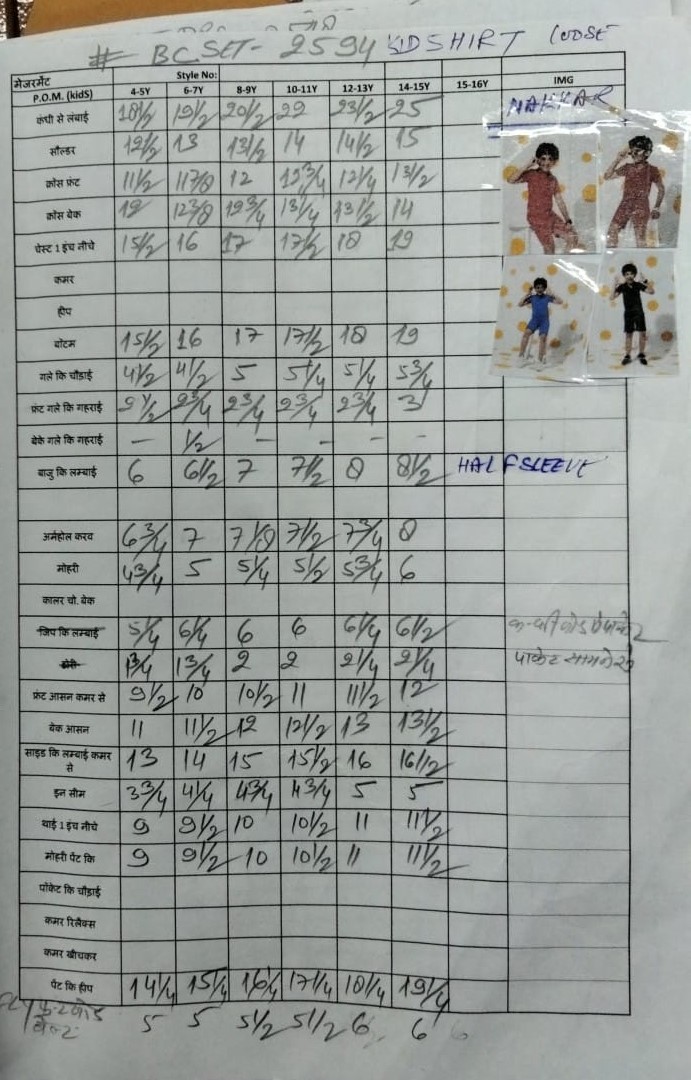 # BC SET - 2594 KID SHIRT LOOSE
मेजरमेंट Style No:
P.O.M. (kidS) 4-5Y 6-7Y 8-9Y 10-11Y 12-13Y 14-15Y 15-16Y IMG
कंधी से लंबाई 18 1/2 19 1/2 20 1/2 22 23 1/2 25 NAKKAR
सौल्डर 12 1/2 13 13 1/2 14 14 1/2 15
क्रॉस फ्रंट 11 1/2 11 7/8 12 12 3/4 13 1/2
क्रॉस बेक 12 12 3/8 12 3/4 13 1/4 13 1/2 14
चेस्ट 1 इंच नीचे 15 1/2 16 17 17 1/2 18 19
कमर
हीप
बॉटम 15 1/2 16 17 17 1/2 18 19
गले कि चौड़ाई 4 1/2 4 1/2 5 5 1/4 5 1/4 5 3/4
फ्रंट गले कि गहराई 2 1/2 2 3/4 2 3/4 2 3/4 2 3/4 3
बेके गले कि गहराई – 1/2 – – – –
बाजु कि लम्बाई 6 6 1/2 7 7 1/2 8 8 1/2 HALF SLEEVE
अर्महोल करव 6 3/4 7 7 1/8 7 1/2 7 3/4 8
मोहरी 4 3/4 5 5 1/4 5 1/2 5 3/4 6
कालर चो. बेक
जिप कि लम्बाई 5 1/4 6 1/4 6 6 6 1/4 6 1/2
1 3/4 1 3/4 2 2 2 1/4 2 1/4 पाकेट सामने से
फ्रंट आसन कमर से 9 1/2 10 10 1/2 11 11 1/2 12
बेक आसन 11 11 1/2 12 12 1/2 13 13 1/2
साइड कि लम्बाई कमर से 13 14 15 15 1/2 16 16 1/2
इन सीम 3 3/4 4 1/4 4 3/4 4 3/4 5 5
थाई 1 इंच नीचे 9 9 1/2 10 10 1/2 11 11 1/2
मोहरी पेंट कि 9 9 1/2 10 10 1/2 11 11 1/2
पॉकेट कि चौड़ाई
कमर रिलैक्स
कमर खीचकर
पेंट कि हीप 14 1/4 15 1/4 16 1/4 17 1/4 18 1/4 19 1/4
5 5 5 1/2 5 1/2 6 6 6